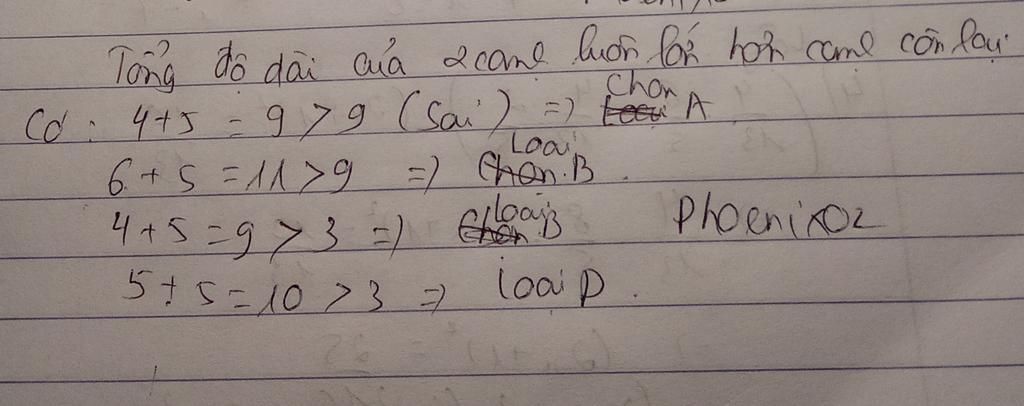 Tổng độ dài của 2 cạnh luôn lớn hơn cạnh còn lại.
Có: 4+5 = 9 > 9 (Sai) => Chọn A
6 + 5 = 11 > 9 => Loại B.
4 + 5 = 9 > 3 => Loại B Phoenix02
5 + 5 = 10 > 3 => loại D.